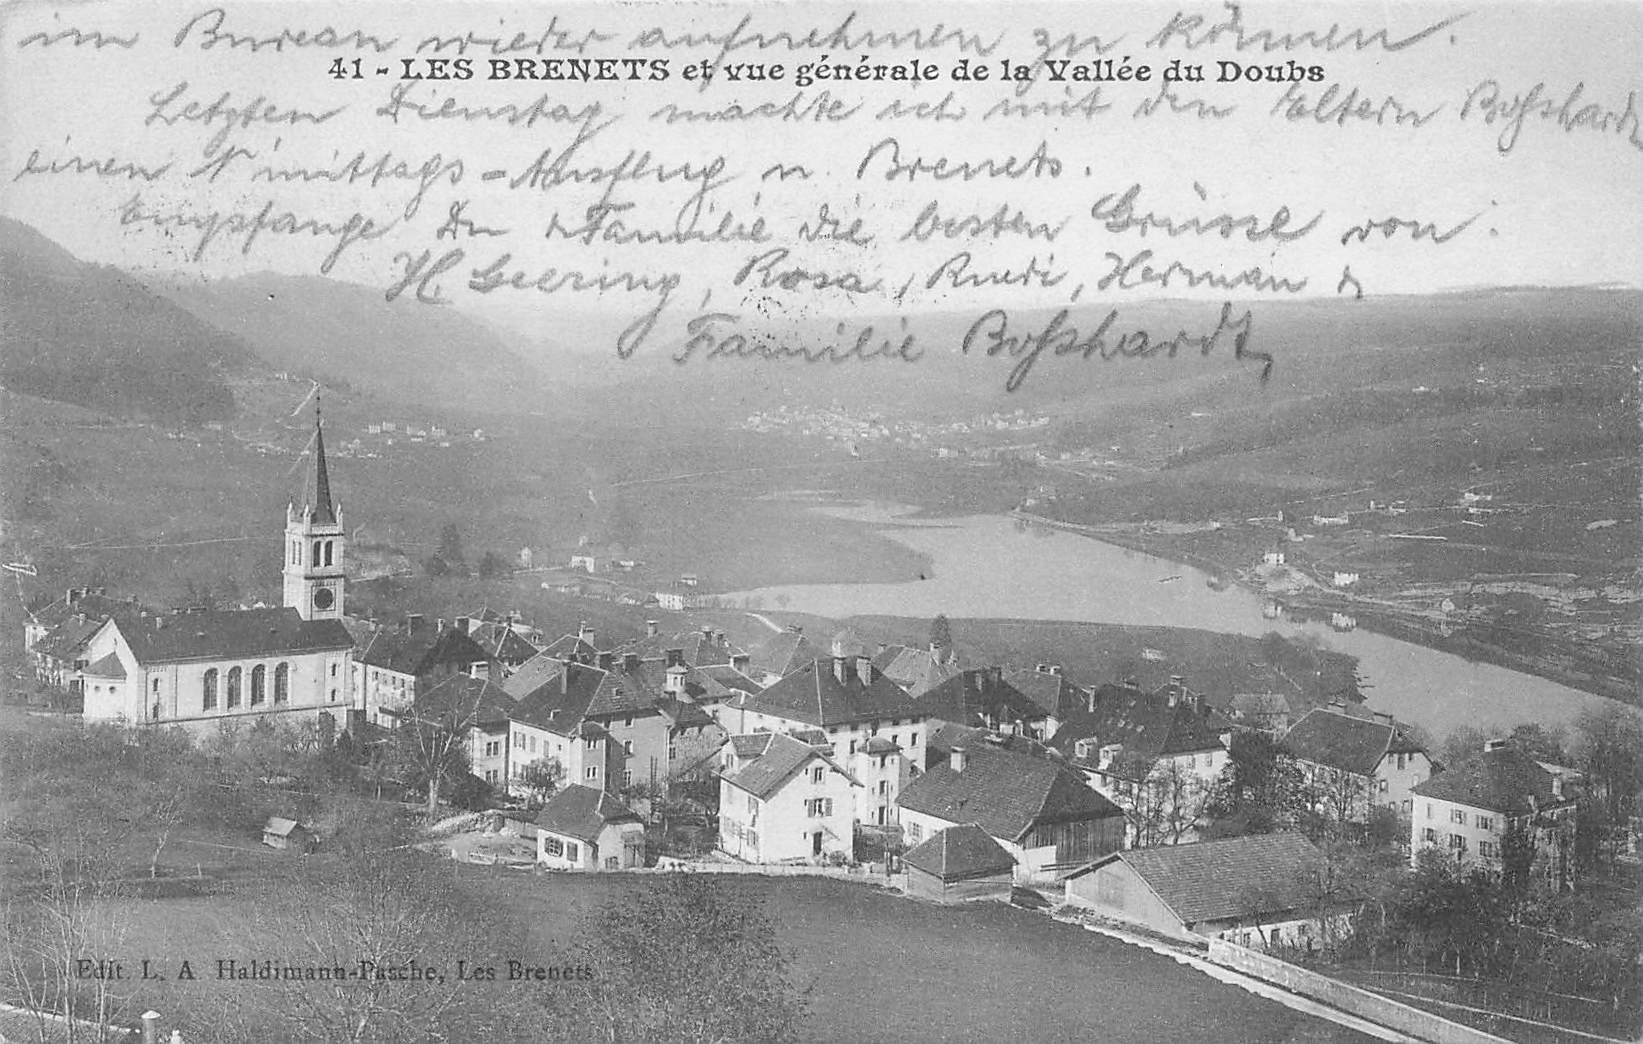 im Bureau wieder aufnehmen zu können.
41 - LES BRENETS et vue générale de la Vallée du Doubs
Letzten Dienstag machte ich mit den Eltern Boßhardt
einen N'mittags-Ausflug n. Brenets.
Empfange Du & Familie die besten Grüsse von
H. Geering, Rosa, Ruedi, Herman &
Familie Boßhardt,
Edit. L. A. Haldimann-Pasche, Les Brenets